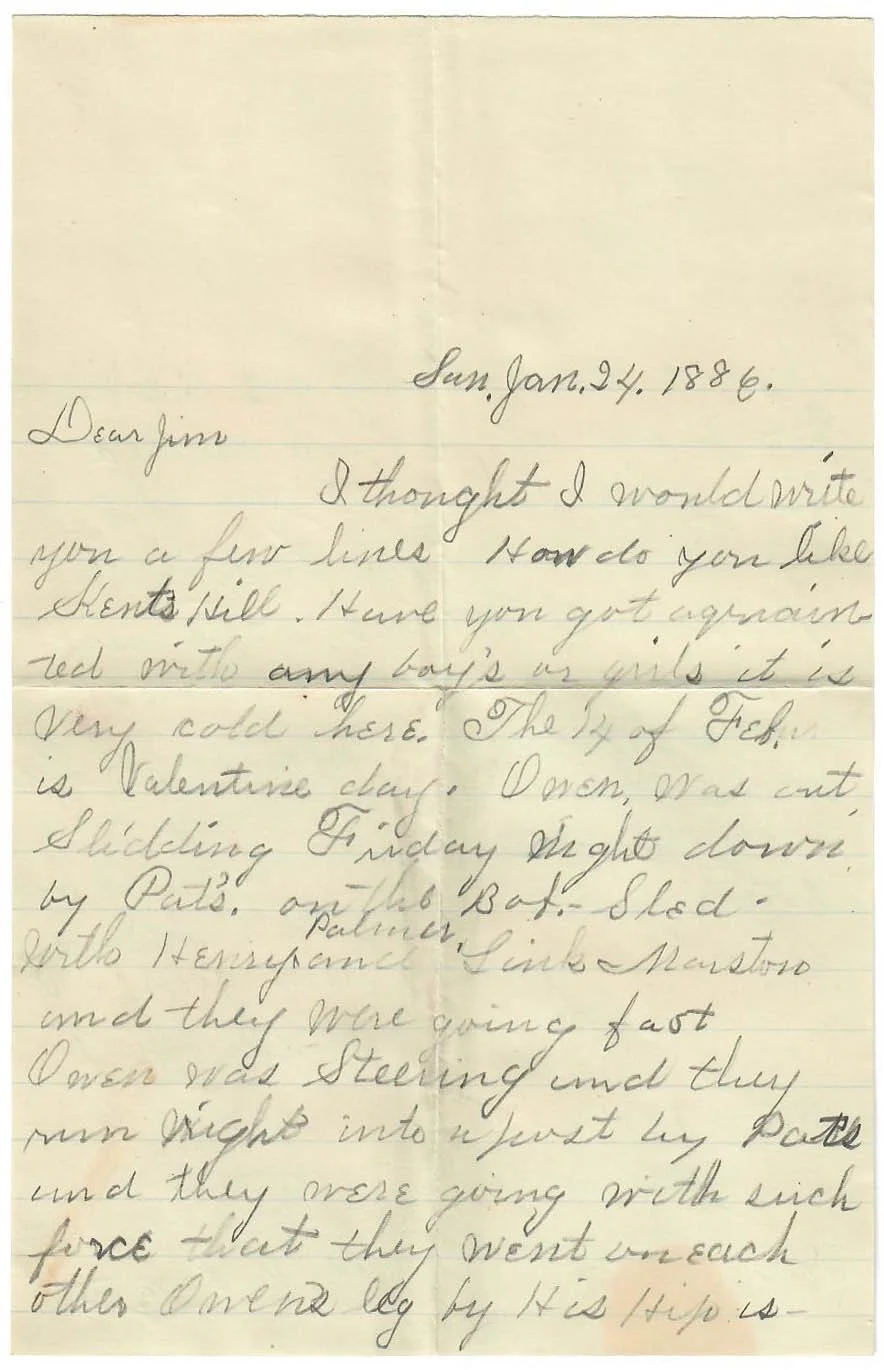 Sun. Jan. 24. 1886.
Dear Jim
I thought I would write
you a few lines How do you like
Kents Hill. Have you got aqrain-
ted with any boy's or girls it is
very cold here. The 14 of Feb.
is Valentine day. Owen, was out
Slidding Friday night down
by Pat's. on the Bob.- Sled.
Palmer,
with Henry and Link Marston
and they were going fast
Owen was Steering and they
run right into a post by Pats
and they were going with such
force that they went on each
other Owens leg by His Hip is-